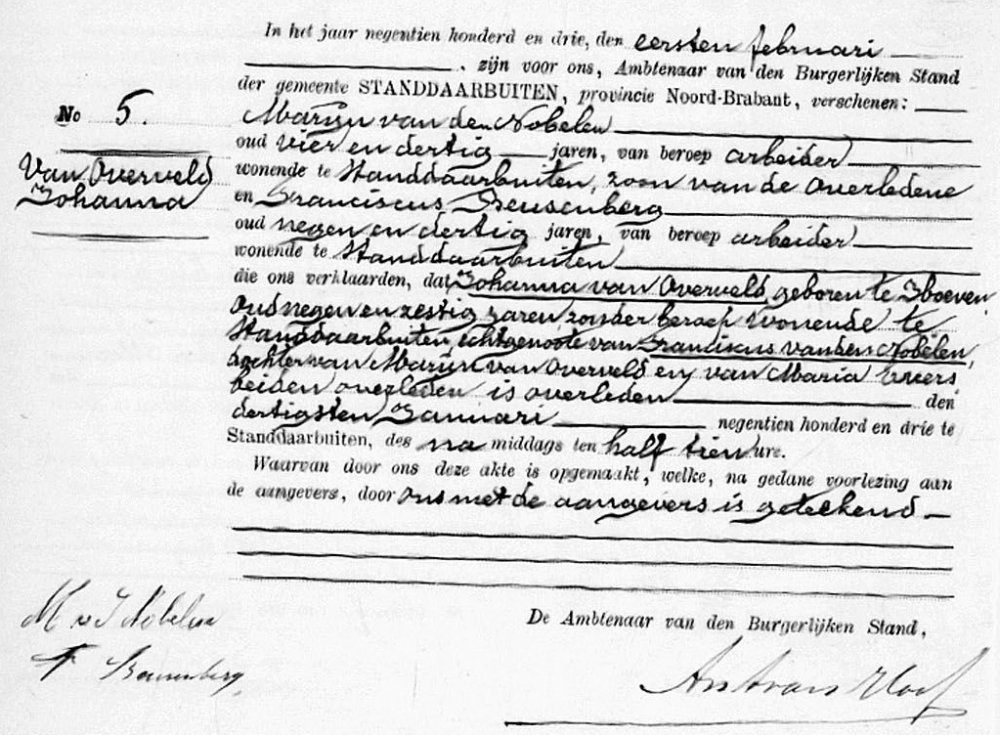 In het jaar negentien honderd en drie, den eersten februari
, zijn voor ons, Ambtenaar van den Burgerlijken Stand
der gemeente STANDDAARBUITEN, provincie Noord-Brabant, verschenen:
No 5.
Van Overveld
Johanna
Marijn van den Nobelen
oud vier en dertig jaren, van beroep arbeider
wonende te Standdaarbuiten, zoon van de overledene
en Franciscus
oud negen en dertig jaren, van beroep arbeider
wonende te Standdaarbuiten
die ons verklaarden, dat Johanna van Overveld, geboren te Hoeven
oud negen en zestig jaren, zonder beroep wonende te
Standdaarbuiten, echtgenoote van Franciskus van den Nobelen,
dochter van Marijn van Overveld en van Maria
beiden overleden is overleden den
dertigsten Januari negentien honderd en drie te
Standdaarbuiten, des na middags ten half tien ure.
Waarvan door ons deze akte is opgemaakt, welke, na gedane voorlezing aan
de aangevers, door ons met de aangevers is geteekend
De Ambtenaar van den Burgerlijken Stand,
M v d Nobelen
F